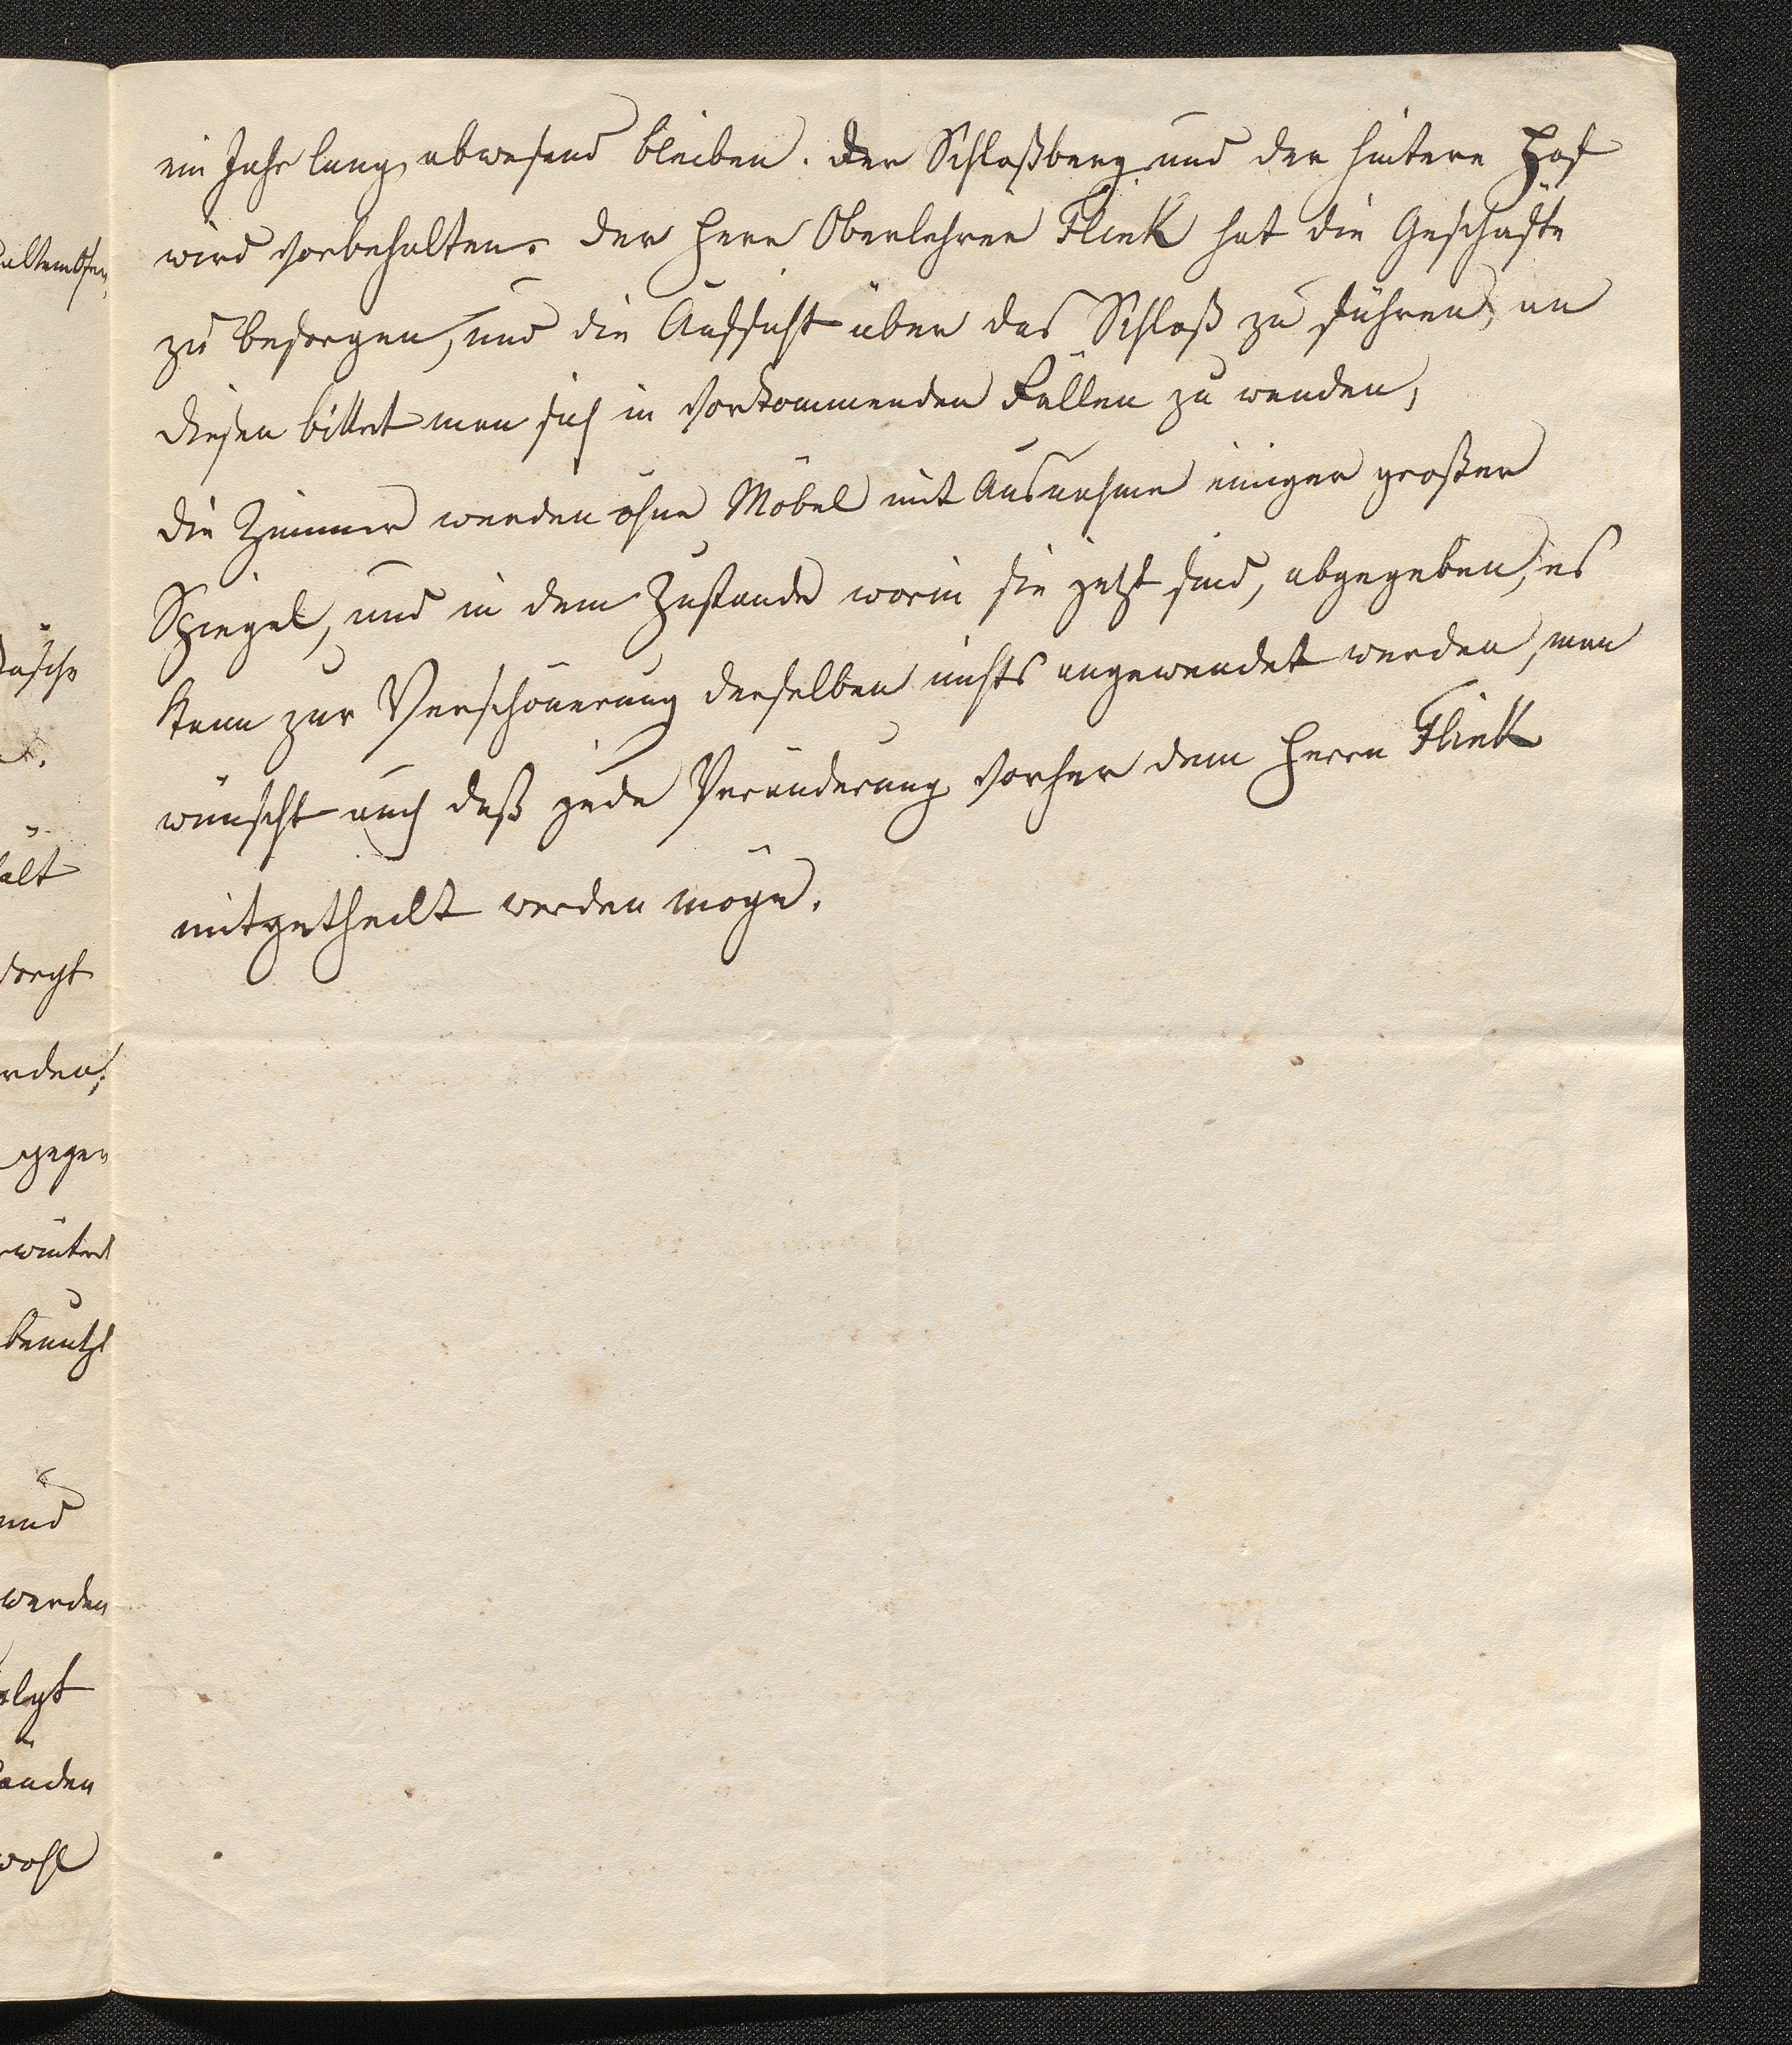 ein Jahr lang abwesend bleiben. Der Schloßberg und der hintere Hof
wird vorbehalten. Der Herr Oberlehrer Flink hat die Geschäfte
zu besorgen, und die Aufsicht über das Schloß zu führen, an
diesen bittet man sich in vorkommenden Fällen zu wenden,
die Zimmer werden ohne Möbel mit Ausnahme einiger großer
Spiegel, und in dem Zustande worin sie jetzt sind, abgegeben, es
kann zur Verschönerung derselben nichts angewendet werden, man
wünscht auch daß jede Veränderung vorher dem Herrn Flink
mitgetheilt werden möge.
alt
rden,
gegen
benutzt
und
werden
änden
wohl